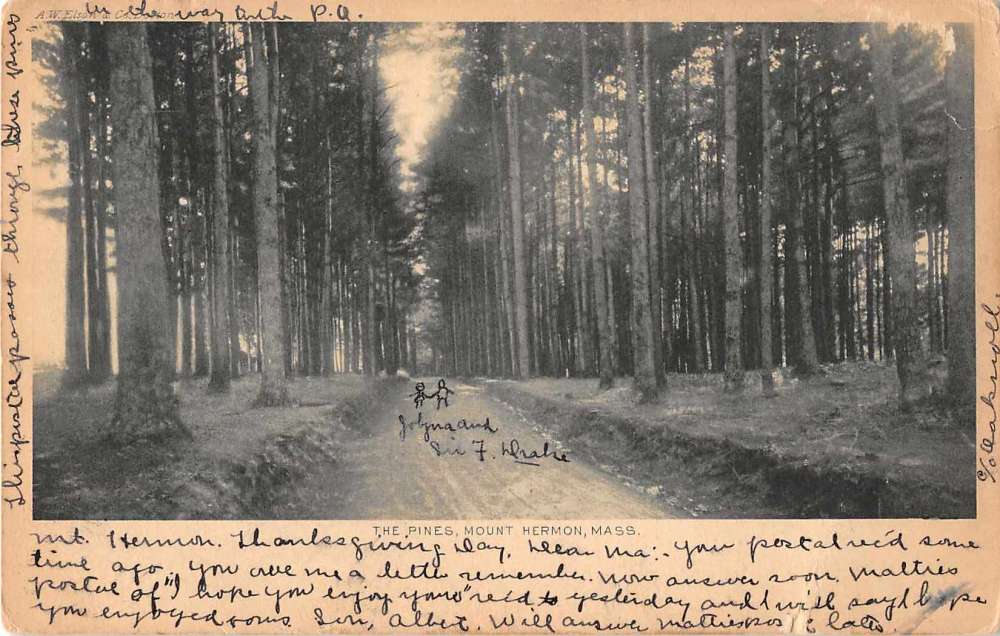 A. W. Elson & Co., Boston
in the way to the P. O.
This postal passes through these pines
Jolyna and
Sir F. Drake
C/o Oaksroll
THE PINES, MOUNT HERMON, MASS.
Mt. Hermon. Thanksgiving Day, Dear Ma:- your postal rec'd some
time ago. you owe me a letter remember. now answer soon. Matties
postal of "I hope you enjoy yours" rec'd to yesterday and I will say I hope
you enjoyed yours. Son, Albert. Will answer Matties postal later.